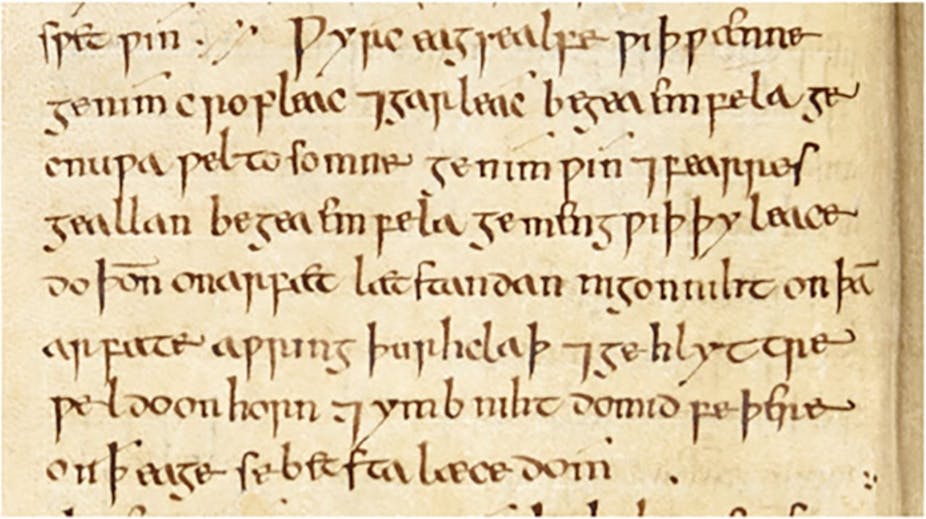 swet win . Ƿyrc eagsealfe wiþ wænne
genim cropleac ⁊ garleac begea emfela ge
cnuwa wel to somne genim win ⁊ fearres
geallan begea emfela gemeng wiþ þy leace
do þon̄ on arfæt læt standan nigon niht on þā
arfate awring þurh claþ ⁊ gehlyttre
wel do on horn ⁊ ymb niht do mid feþre
on ꝥ eage se betsta læce dom .